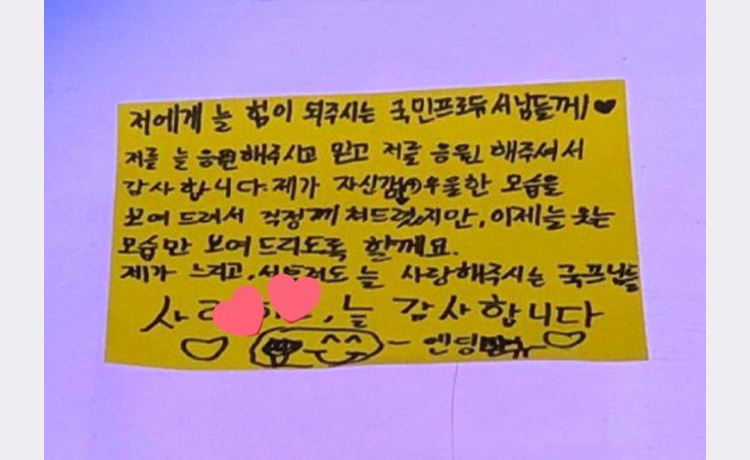 저에게 늘 힘이 되주시는 국민프로듀서님들께♥
저를 늘 응원해주시고 믿고 저를 응원 해주셔서
감사합니다. 제가 우울한 모습을
보여 드려서 걱정끼쳐드렸지만, 이제는 웃는
모습만 보여드리도록 할께요.
제가 느리고, 서툴러도 늘 사랑해주시는 국프님들
늘 감사합니다
- 엔딩